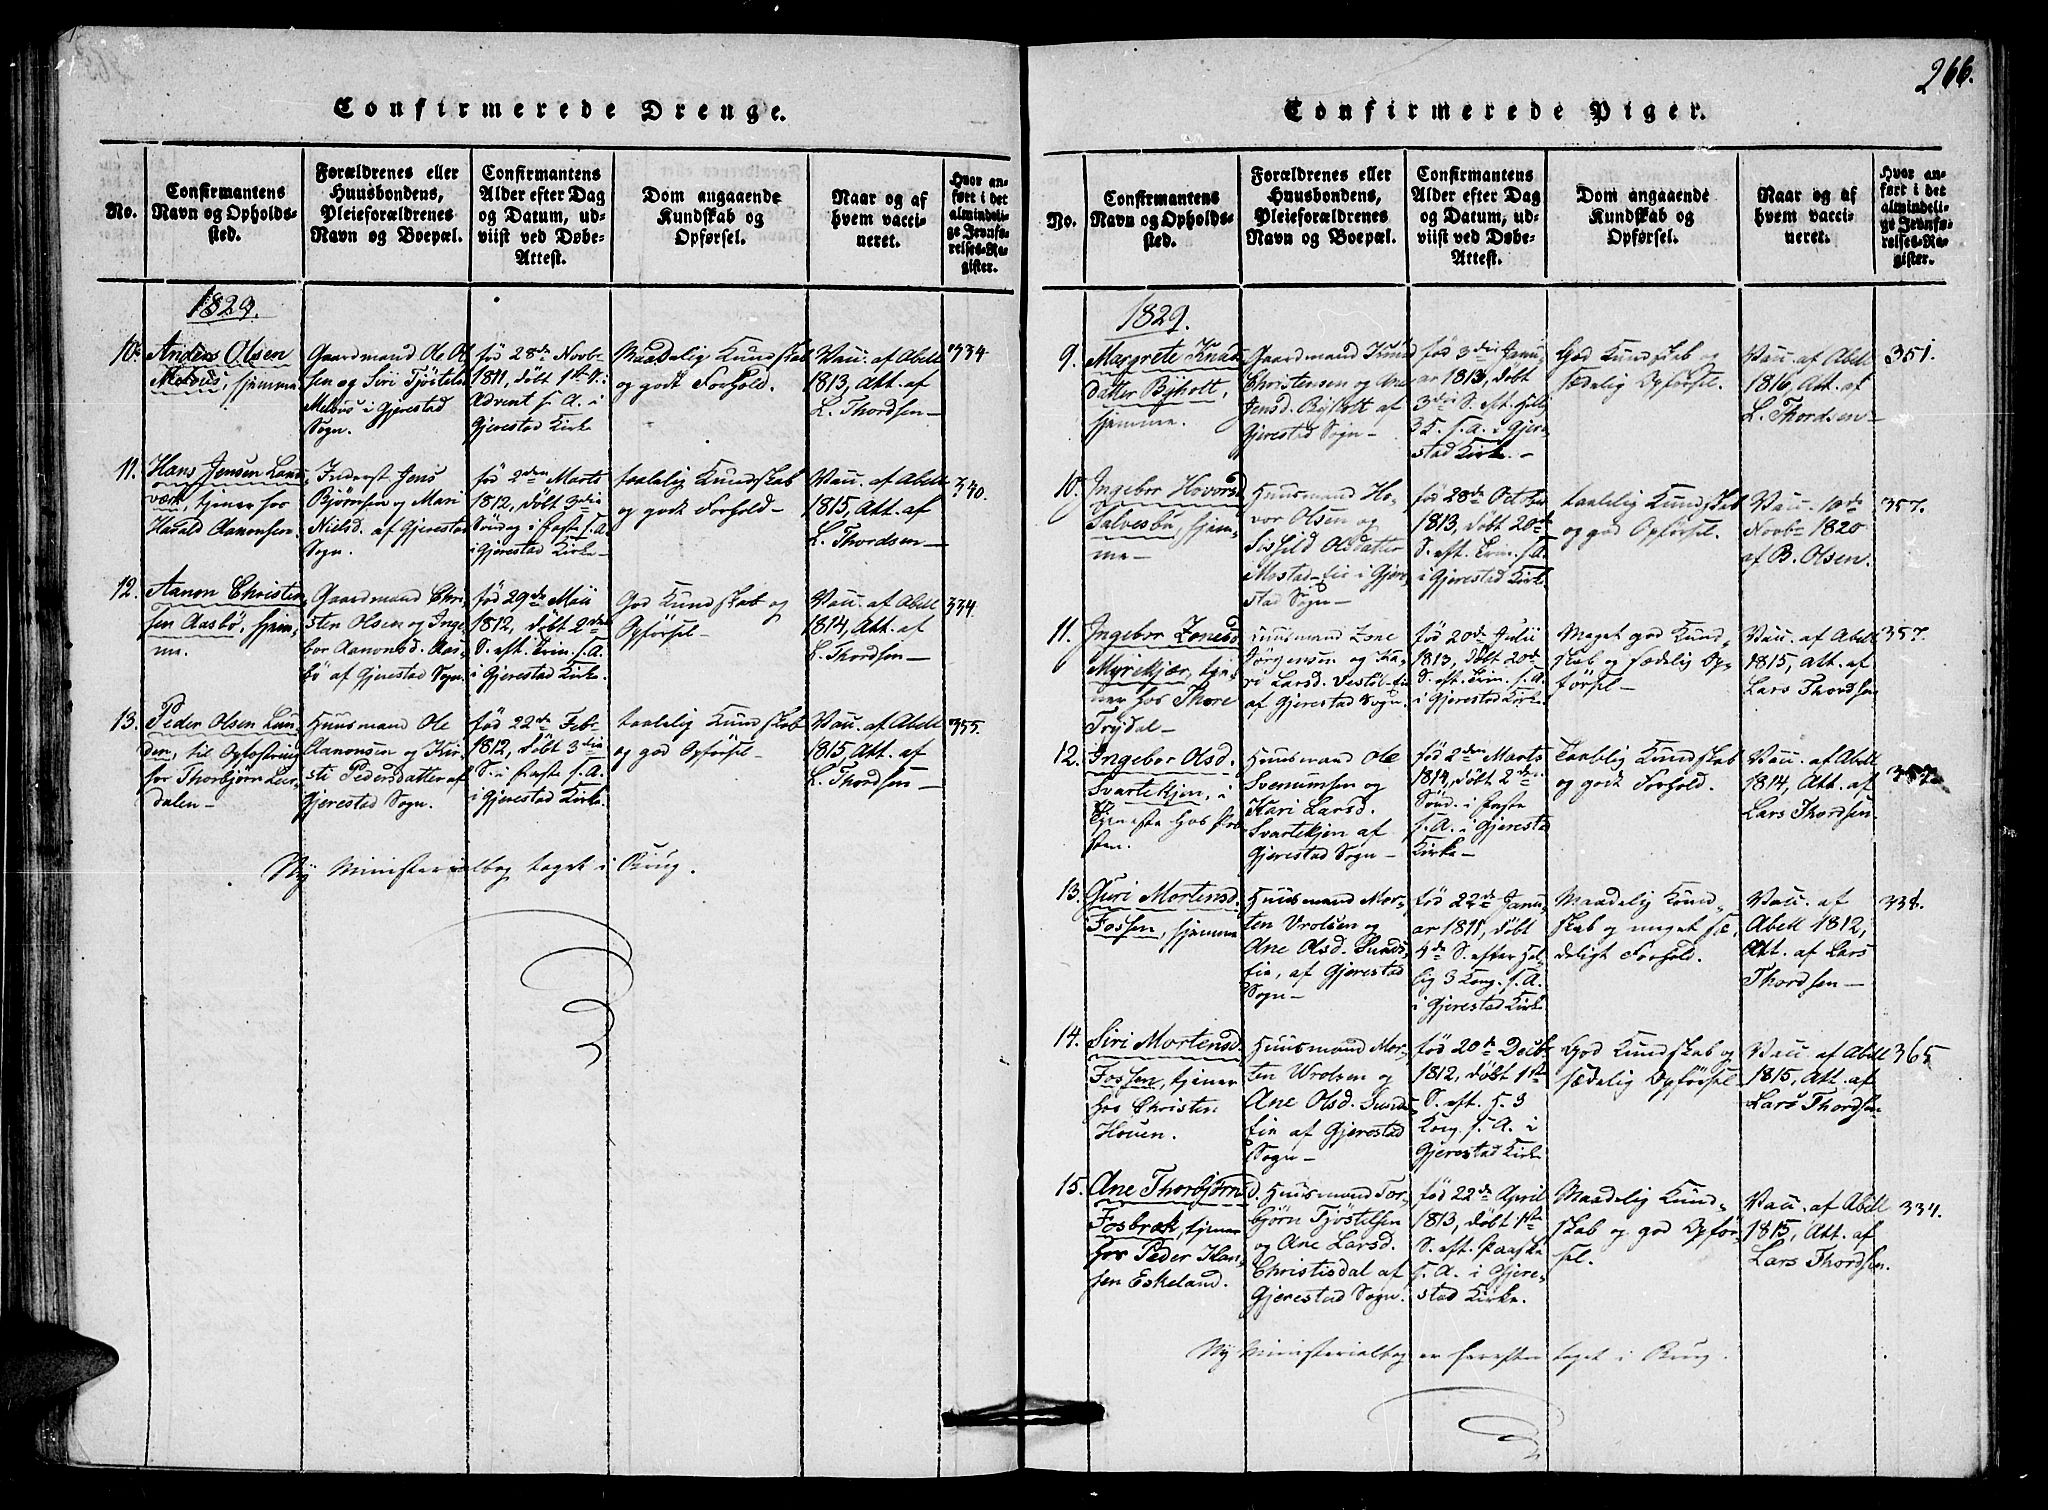 266.
Confirmerede Drenge.
No.
Confirmantens
Navn og Opholds-
sted.
Forældrenes eller
Huusbondens,
Pleieforældrenes
Navn og Boepæl.
Confirmantens
Alder efter Dag
og Datum, ud-
viist ved Døbe-
Attest.
Dom angaaende
Kundskab og
Opførsel.
Naar og af
hvem vacci-
neret.
Hvor an-
ført i det
almindeli-
ge Jevnfø-
relses-Re-
gister.
1829.
10.
Anders Olsen
Melaas, hjemme
Gaardmand Ole Ol
sen og Siri Tjöstels
Melaas i Gjerestad
Sogn.
fød 28de Novbr
1811, døbt 1st S. i
Advent s. A. i
Gjerestad Kirke
Maadelig Kundskab
og godt Forhold.
Vau. af Abell
1813, Att. af
L. Thordsen—
334
11.
Hans Jensen Land
værk, tjener hos
Harald Aanonsen.
Inderst Jens
Bjørnsen og Mari
Nielsd. af Gjerestad
Sogn.
fød 2den Marts
1812, døbt 3die
Søndag i Faste s. A.
i Gjerestad Kirke—
taalelig Kundskab
og godt Forhold—
Vau. af Abell
1815, Att. af
L. Thordsen—
340.
12.
Aanon Christen
sen Aasbø, hjem-
me.
Gaardmand Chri-
sten Olsen og Inge
bor Aanonsd. Aas-
bö af Gjerestad Sogn.
fød 29de Maii
1812, døbt 2den
S. eft. Trin. s. A.
i Gjerestad Kirke.
God Kundskab og
Opførsel—
Vau. af Abell
1814, Att. af
L. Thordsen—
334.
13.
Peder Olsen Lun
den, til Opfostring
hos Thorbjørn Lier-
dalen—
Huusmand Ole
Aanonsen og Kir-
sti Pedersdatter af
Gjerestad Sogn.
fød 22de Febr
1812, døbt 3die
S. i Faste s. A.
i Gjerestad Kirke.
taalelig Kundskab
og god Opførsel—
Vau. af Abell
1815 Att. af
L. Thordsen—
355.
Ny Ministerialbog taget i Brug.
Confirmerede Piger.
No.
Confirmantens
Navn og Opholds-
sted.
Forældrenes eller
Huusbondens,
Pleieforældrenes
Navn og Boepæl.
Confirmantens
Alder efter Dag
og Datum, ud-
viist ved Døbe-
Attest.
Dom angaaende
Kundskab og
Opførsel.
Naar og af
hvem vacci-
neret.
Hvor an-
ført i det
almindeli-
ge Jevnfø-
relses-Re-
gister.
1829.
9.
Margrete Knud
datter Byholt,
hjemme.
Gaardmand Knud
Christensen og Ane
Jensd. Byholt af
Gjerestad Sogn—
fød 3die Janu
ar 1813, døbt
3die S. eft. Hellig
3K. s. A. i Gjere-
stad Kirke.—
God Kundskab og
sædelig Opførsel.
Vau. af Abell
1816, Att. af
L. Thordsen—
351.
10.
Ingebor Hovorsd
Salvesbø, hjem-
me—
Huusmand Ho-
vor Olsen og
Olsdatter
Mostad-Eie i Gjere-
stad Sogn—
fød 28de October
1813, døbt 20de
S. eft. Trin. s. A.
i Gjerestad Kirke
taalelig Kundskab
og god Opførsel.
Vau. 10de
Novbr 1820
af B. Olsen.
357.
11.
Ingebor Zonesd
Myrekjær, tje-
ner hos Thore
Trydal—
Huusmand Zone
Jörgensen og Ka-
ri Larsd. Vestöl-Eie
af Gjerestad Sogn.
fød 20de Julii
1813, døbt 20de
S. eft. Trin. s. A.
i Gjerestad Kirke.
Meget god Kund-
skab og sædelig Op-
førsel—
Vau. af Abell
1815, Att. af
Lars Thordsen
357.
12.
Ingebor Olsd.
Svartekjen, i
Tjeneste hos Præ-
sten.
Huusmand Ole
Svenumsen og
Kari Larsd.
Svartekjen af
Gjerestad Sogn—
fød 2den Marts
1814, døbt 2den
Sønd. i Faste
s. A. i Gjerestad
Kirke—
Taalelig Kundskab
og godt Forhold.
Vau. af Abell
1814, Att. af
Lars Thordsen.
357.
13.
Guri Mortensd.
Fossen, hjemme
Huusmand Mor-
ten Vrolsen og
Ane Olsd. Sunds-
Eie, af Gjerestad
Sogn—
fød 22de Janu-
ar 1811, døbt
4de S. efter Hel-
lig 3 Kong. s. A.
i Gjerestad Kirke
Maadelig Kund-
skab og meget sæ-
deligt Forhold.
Vau. af
Abell 1812,
Att. af Lars
Thordsen—
338.
14.
Siri Mortensd.
Fossen, tjener
hos Christen
Hoven.
Huusmand Mor-
ten Wrolsen og
Ane Olsd. Sunds-
Eie af Gjerestad
Sogn—
fød 20de Decbr
1812, døbt 1ste
S. eft. H. 3
Kong. s. A. i
Gjerestad Kirke
God Kundskab og
sædelig Opførsel—
Vau. af Abell
1815, Att. af
Lars Thordsen
365
15.
Ane Thorbjörnsd.
Fosbræk, tjener
hos Peder Han-
sen Eskeland.
Huusmand Tor-
bjørn Tjöstelsen
og Ane Larsd.
Christisdal af
Gjerestad Sogn.
fød 22de April
1813, døbt 1ste
S. eft. Paaske
s. A. i Gjere-
stad Kirke.
Maadelig Kund-
skab og god Opför-
sel.
Vau. af Abell
1815, Att. af
Lars Thordsen.
334.
Ny Ministerialbog er herefter taget i Brug.